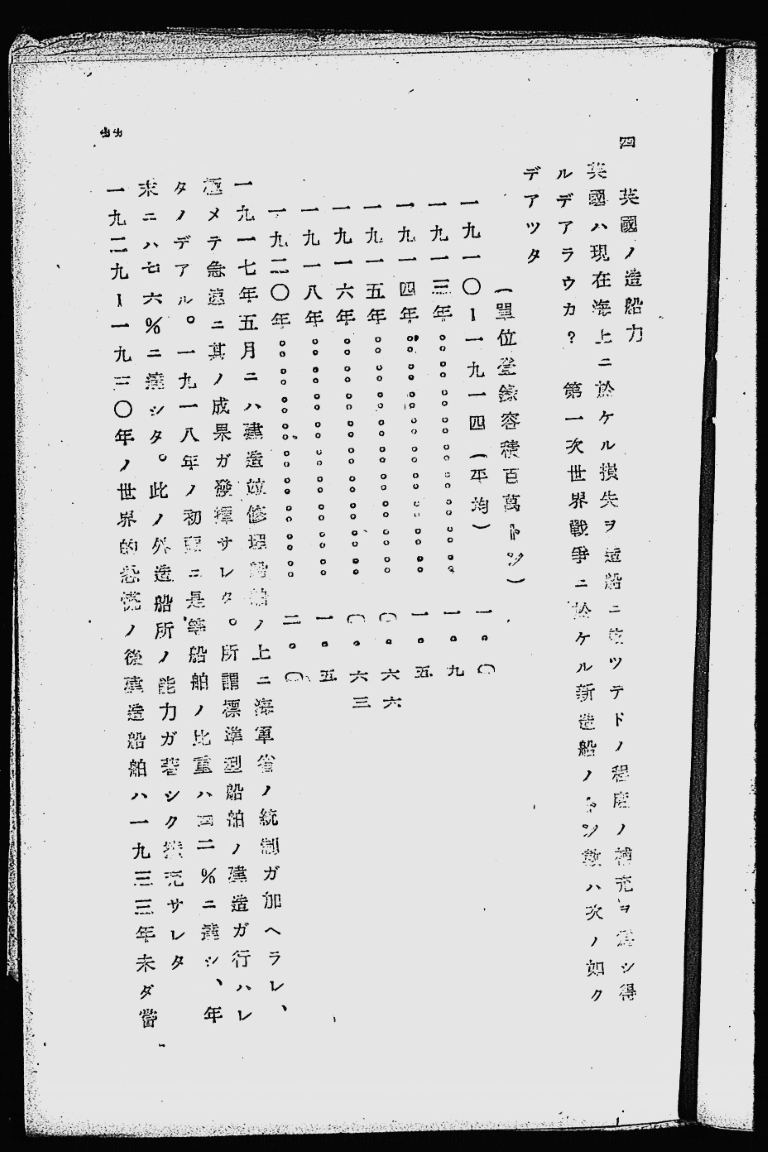 四　英國ノ造船力
英國ハ現在海上ニ於ケル損失ヲ造船ニ依ツテドノ程度ノ補充ヲ爲シ得
ルデアラウカ?　第一次世界戰爭ニ於ケル新造船ノトン數ハ次ノ如ク
デアツタ
(單位登錄容積百萬トン)
一九一〇―一九一四(平均)　一。〇
一九一三年。。。。。。。。。。。。。。。。　一。九
一九一四年。。。。。。。。。。。。。。。。　一。五
一九一五年。。。。。。。。。。。。。。。。　〇。六六
一九一六年。。。。。。。。。。。。。。。。　〇。六三
一九一八年。。。。。。。。。。。。。。。。　一。五
一九二〇年。。。。。。。。。。。。。。。。　二。〇
一九一七年五月ニハ建造竝修理船舶ノ上ニ海軍省ノ統制ガ加ヘラレ、
極メテ急速ニ其ノ成果ガ發揮サレタ。所謂標準型船舶ノ建造ガ行ハレ
タノデアル。一九一八年ノ初頭ニ是等船舶ノ比重ハ四二%ニ達シ、年
末ニハ七六%ニ達シタ。此ノ外造船所ノ能力ガ著シク擴充サレタ
一九二九―一九三〇年ノ世界的恐慌ノ後建造船舶ハ一九三三年未ダ當